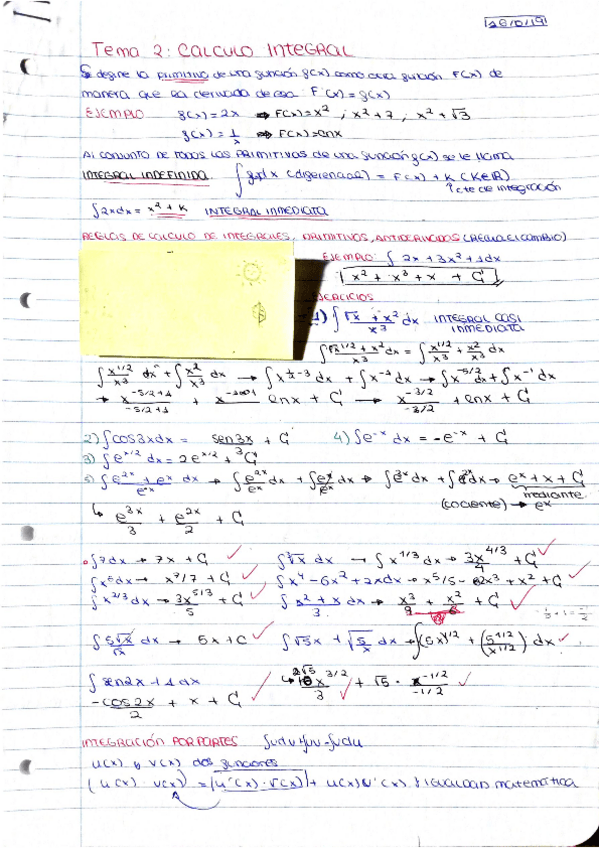 28/10/19
Tema 2: CALCULO INTEGRAL
Se define la primitiva de una función f(x) como otra función F(x) de
manera que la derivada de esa: F'(x) = f(x)
EJEMPLO f(x) = 2x ⇒ F(x) = x² ; x² + 7 ; x² + √3
f(x) = 1/x ⇒ F(x) = lnx
Al conjunto de TODOS LAS PRIMITIVAS de una función f(x) se le llama
INTEGRAL INDEFINIDA. ∫ f(x)dx (diferencial) = F(x) + K (K∈R)
↑cte de integración
∫2xdx = x² + K INTEGRAL INMEDIATA
REGLAS DE CALCULO DE INTEGRALES, PRIMITIVAS, ANTIDERIVADAS
EJEMPLO: ∫ 2x + 3x² + 1dx
x² + x³ + x + C
EJERCICIOS
1) ∫ (√x + x²)/x³ dx INTEGRAL CASI
INMEDIATA
∫ x^(1/2)/x³ dx + ∫ x²/x³ dx → ∫x^(1/2-3) dx + ∫x^-1 dx → ∫x^(-5/2) dx + ∫x^-1 dx
lnx + C → x^(-3/2)/(-3/2) + lnx + C
2) ∫cos3xdx = sen3x/3 + C 4) ∫e^-x dx = -e^-x + C
3) ∫e^(x/2) dx = 2e^(x/2) + C
(cociente) → e^x inmediante
↳ e^(3x)/3 + e^(2x)/2 + C
∫7dx → 7x + C ✓ ∫³√x dx → ∫x^(1/3) dx → 3x^(4/3)/4 + C ✓
∫x⁶dx → x⁷/7 + C ✓ ∫x⁴ - 6x² + 2xdx → x⁵/5 - 2x³ + x² + C ✓
∫x^(2/3)dx → 3x^(5/3)/5 + C ✓
∫ 5√x/√x dx → 5x + C ✓ ∫√5x + √(5/x) dx → ∫(5x)^(1/2) + (5^(1/2)/x^(1/2)) dx ✓
∫sen2x + 1 dx
-cos2x/2 + x + C ✓
INTEGRACIÓN POR PARTES ∫udv = uv - ∫vdu
u(x) y v(x) dos funciones
(u(x) · v(x))' = u'(x) · v(x) + u(x)·v'(x) } igualdad matemática